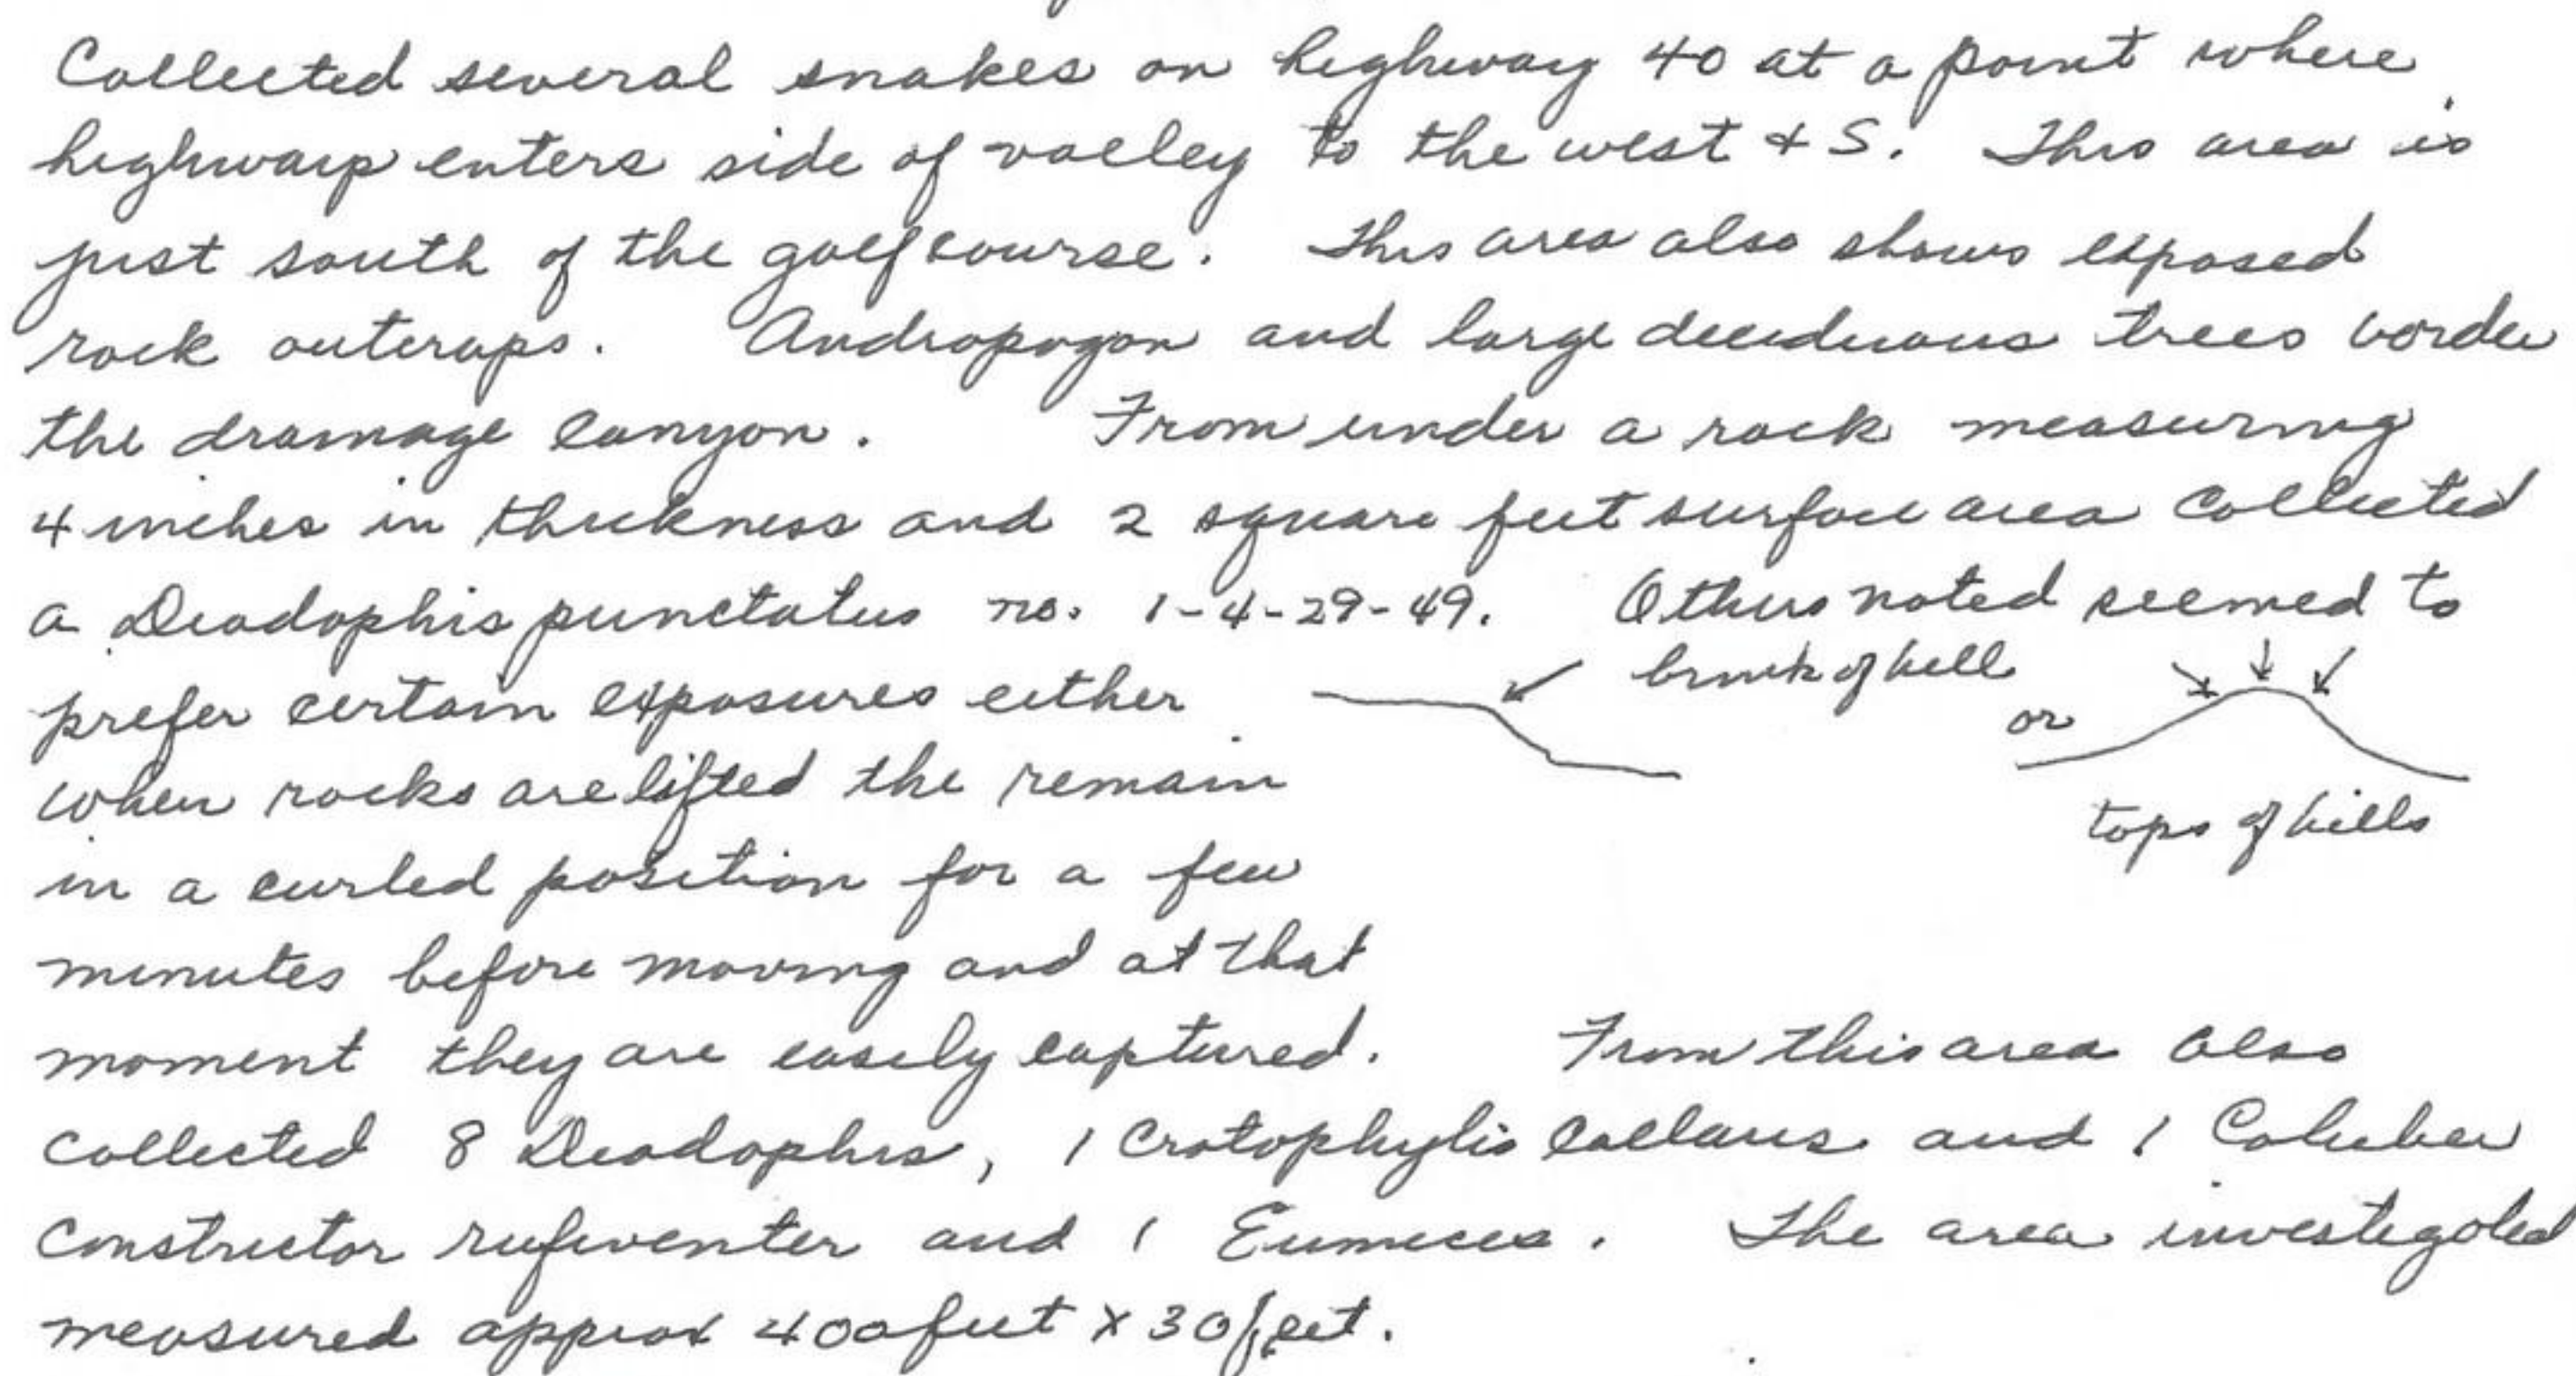 Collected several snakes on highway 40 at a point where
highway enters side of valley to the west + S. This area is
just south of the golf course. This area also shows exposed
rock outcrops. Andropogon and large deciduous trees border
the drainage canyon. From under a rock measuring
4 inches in thickness and 2 square feet surface area collected
a Diadophis punctatus no. 1-4-29-49. Others noted seemed to
prefer certain exposures either
brink of hill
or
tops of hills
when rocks are lifted the remain
in a curled position for a few
minutes before moving and at that
moment they are easily captured. From this area also
collected 8 Diadophis, 1 Crotophylis collaris and 1 Coluber
constructor rufiventer and 1 Eumeces. The area investigated
measured approx 400 feet x 30 feet.